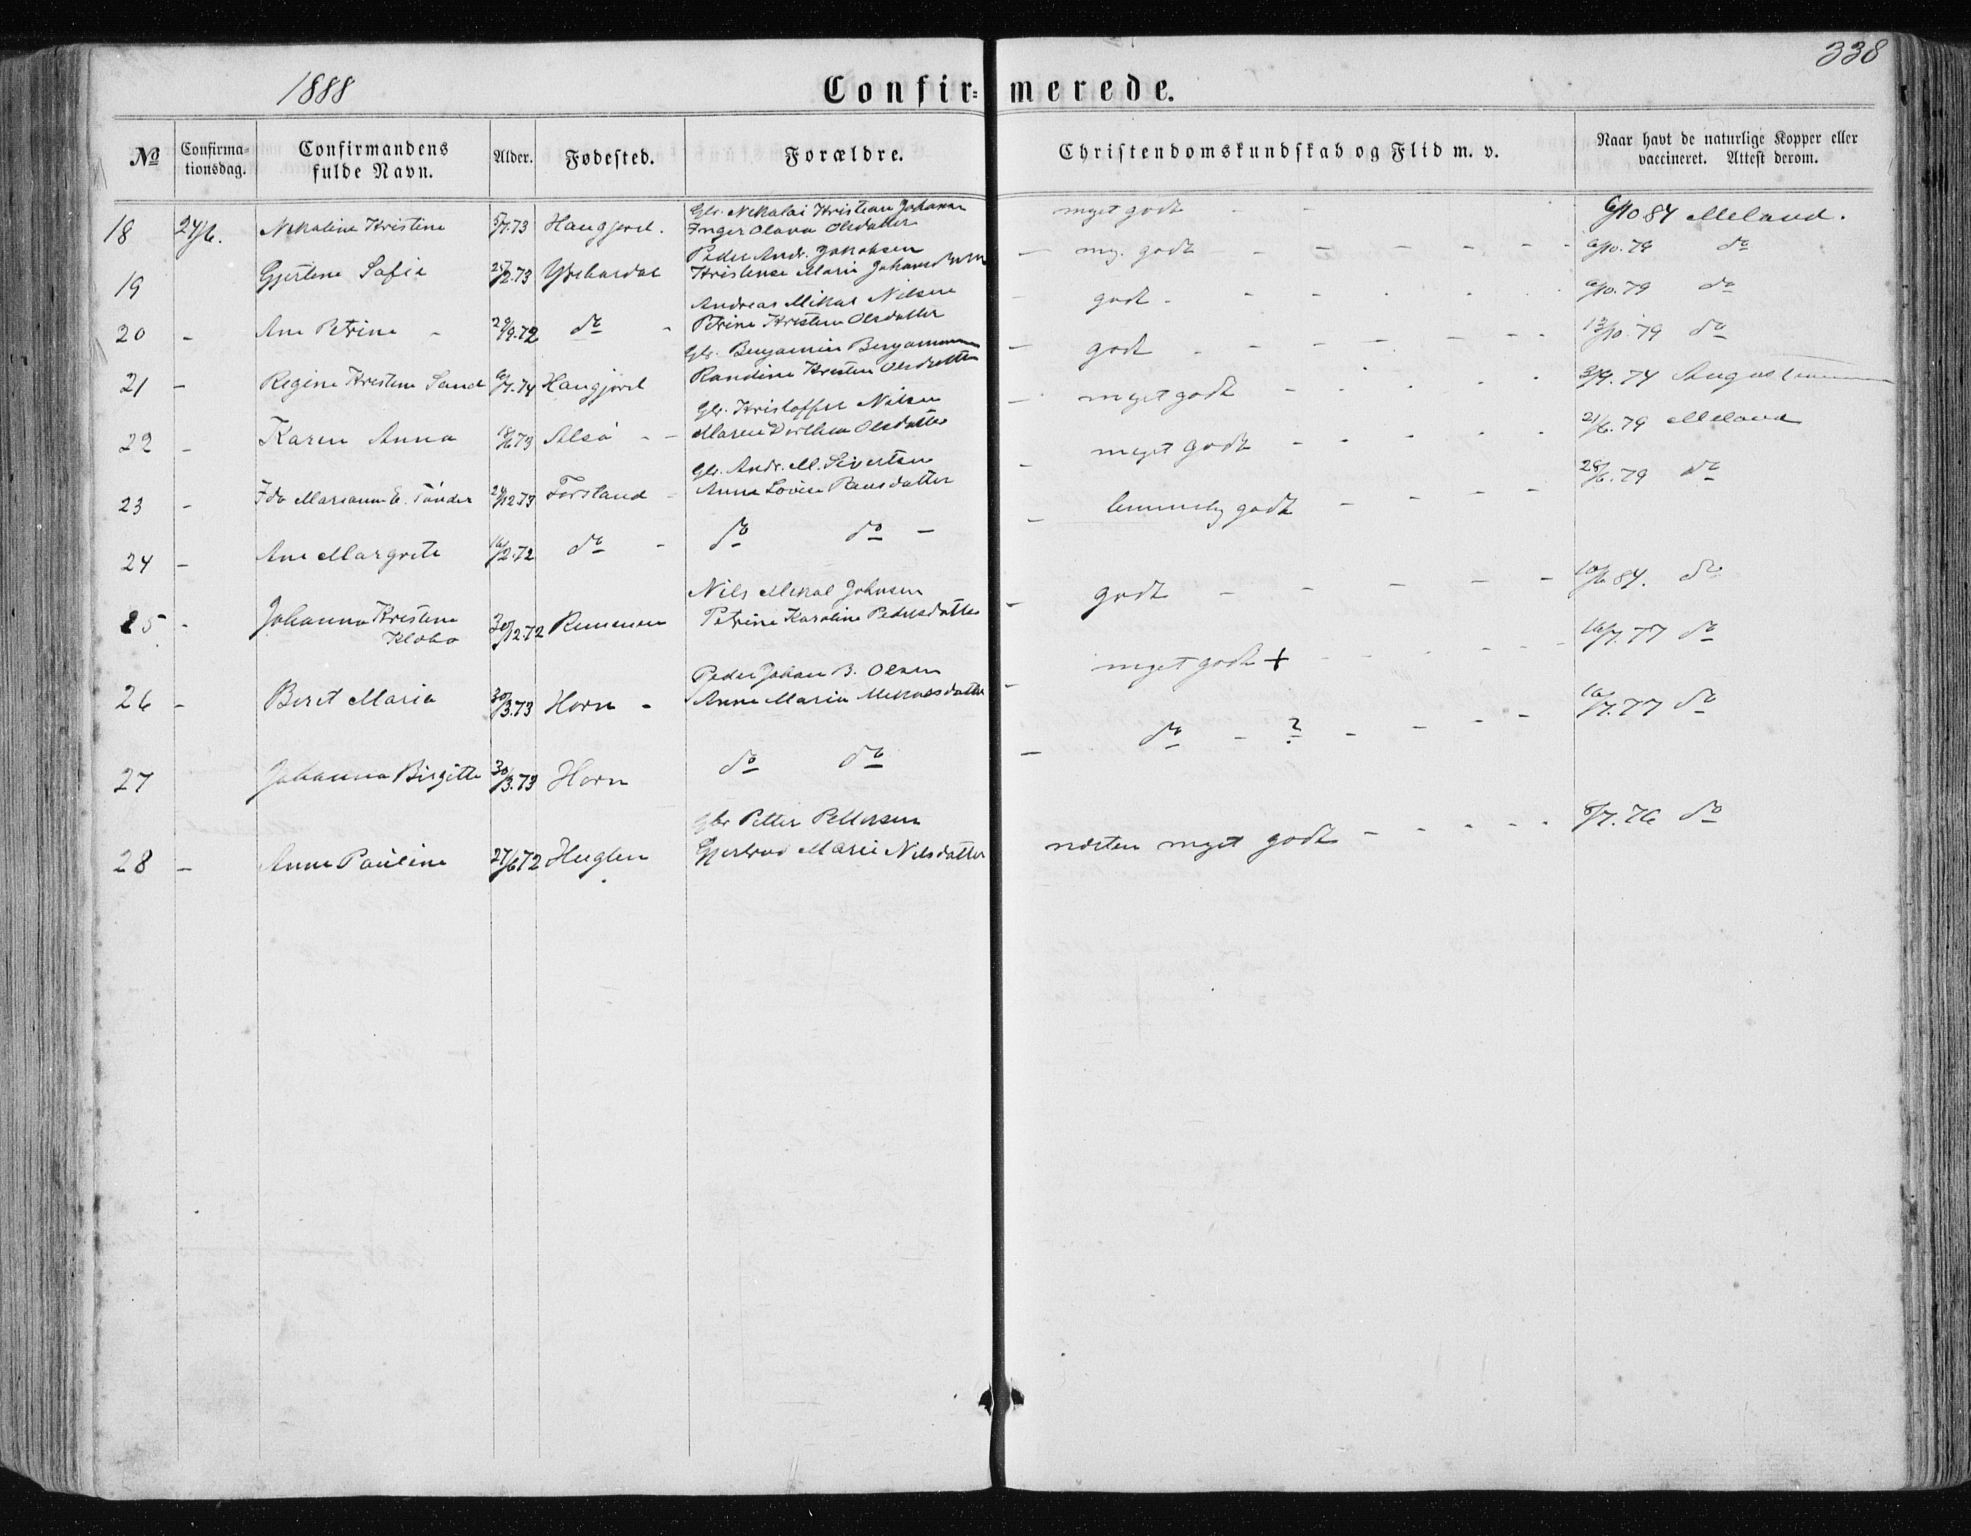 338
1888
Confirmerede.
No
Confirmationsdag.
Confirmandens fulde Navn.
Alder.
Fødested.
Forældre.
Christendomskundskab og Flid m. v.
Naar havt de naturlige Kopper eller vaccineret. Attest derom.
18 24/6. Nikoline Kristine 5/7.73 Haugjord. Gbr. Nikolai Kristian Johansen meget godt - - 6/10 84 Meland.
Inger Olava Olsdatter
19 Gjertine Sofie 25/2.73 Peder Andr. Jakobsen - mg. godt - - - - - - 6/10.79 do
Kristense Marie
20 - Ane Petrine - 29/9.72 do - Andreas Mikal Nilsen - godt - - - - - - 6/10.79 do
Petrine Kristine Olsdatter
21 - Regine Kristine Sand 6/7.74 Haugjord Gbr. Benjamin Benjaminsen - godt - - - - - - 13/10.79 do
Randine Kristine Olsdatter
22 - Karen Anna 18/6.73 Alsø - - Gbr. Kristoffer Nilsen - meget godt - - - - - 3/9.74
Maren Dorthea Olsdatter
23 - Ida Marianne E. Tönder 24/12 73 Forsland - Gbr. Andr. M. Sivertsen - meget godt - - - - - 21/6.79 Meland
Anne Lovise
24 - Ane Margrete 16/2.72 do - do do - - temmelig godt - - - - - 28/6.79 do
25 - Johanna Kristine 30/12.72 Remmen Nils Mikal Johnsen - godt - - - - - 10/6 84. do
Klobo Petrine Karoline Pedersdatter
26 - Beret Maria 30/3.73 Horn - Peder Johan B. Olsen - meget godt + - - - - 16/7.77 do
Anne Maria Mikalsdatter
27 Johanna Birgitte 30/3.73 Horn do do - do - ? - - - - 16/7.77 do
28 - Anne Pauline 27/6 72 Huglen Gbr Petter Pettersen næsten meget godt - - - - - 8/7.76 do
Gjertrud Marie Nilsdatter